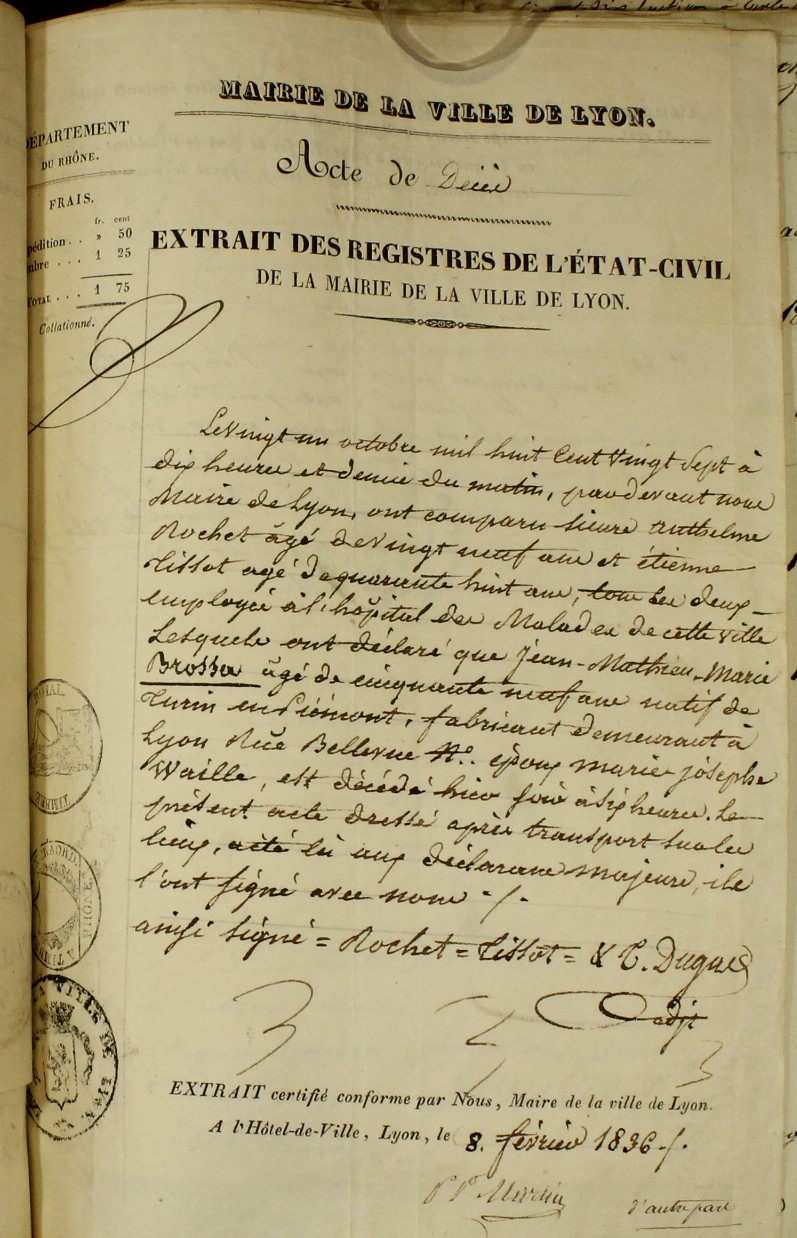 MAIRIE DE LA VILLE DE LYON.
DÉPARTEMENT
DU RHÔNE.
Acte de Décès
FRAIS.
fr. cent
pédition . . » 50
mbre . . . 1 25
TOTAL . . . 1 75
Collationné.
EXTRAIT DES REGISTRES DE L'ÉTAT-CIVIL
DE LA MAIRIE DE LA VILLE DE LYON.
Le vingt un octobre mil huit Cent vingt Sept à
dix heures et demie du matin, par devant nous
Maire de Lyon, ont comparu sieurs Anthelme
Rochet âgé de vingt neuf ans et étienne
Tissot agé de quarante huit ans, tous les deux
employés à l'hôpital des Malades de cette ville
Lesquels ont déclaré que Jean-Mathieu-Marie
Brossa âgé de cinquante neuf ans natif de
Turin en Piémont, fabricant demeurant à
Lyon Rue Bellevue N°. époux marie josephe
Waille, est décédé hier soir à six heures. Le
présent acte dressé après transport sur les
lieux, a été lu aux déclarans majeurs, ils
l'ont signé avec nous ./.
ainsi signé = Rochet = Tissot = & C. Dugas
adjt
EXTRAIT certifié conforme par Nous, Maire de la ville de Lyon.
A l'Hôtel-de-Ville, Lyon, le 8. février 1836 ./.
d'autre part